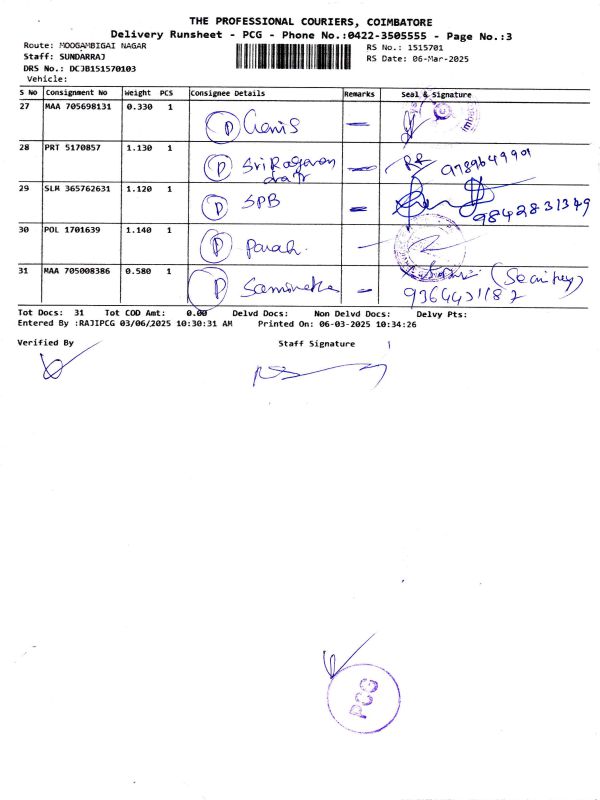 THE PROFESSIONAL COURIERS, COIMBATORE
Delivery Runsheet - PCG - Phone No.:0422-3505555 - Page No.:3
Route: MOOGAMBIGAI NAGAR
RS No.: 1515701
Staff: SUNDARRAJ
RS Date: 06-Mar-2025
DRS No.: DCJB151570103
Vehicle:
S No Consignment No Weight PCS Consignee Details Remarks Seal & Signature
27 MAA 705698131 0.330 1 D
28 PRT 5170857 1.130 1 D Sri 9789649901
29 SLR 365762631 1.120 1 D SPB 9842831349
30 POL 1701639 1.140 1 D
31 MAA 705008386 0.580 1 D
Tot Docs: 31 Tot COD Amt: 0.00 Delvd Docs: Non Delvd Docs: Delvy Pts:
Entered By :RAJIPCG 03/06/2025 10:30:31 AM Printed On: 06-03-2025 10:34:26
Verified By Staff Signature
PCG